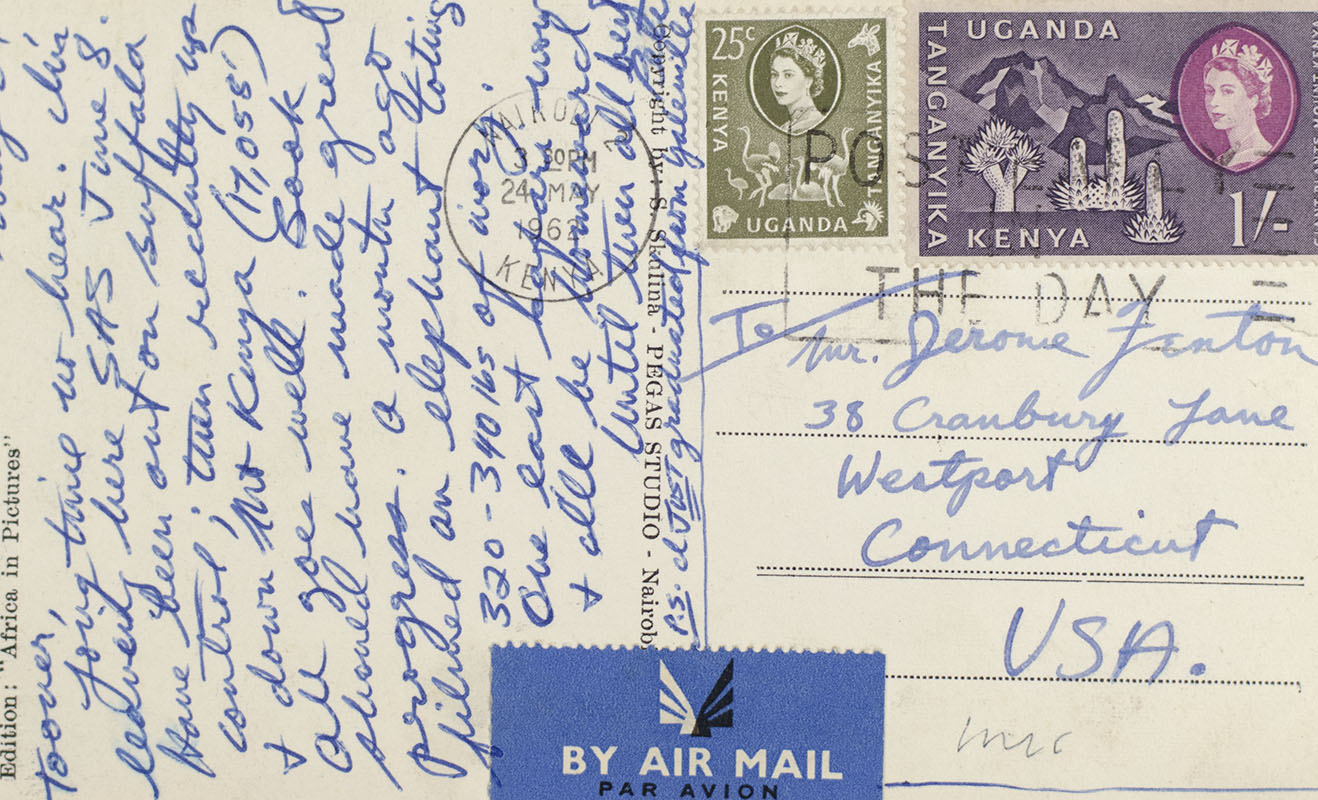 Long time no hear.
leaving here SAS June 8.
Have been out on buffalo
control; then recently up
& down Mt Kenya (17,058')
All goes well. Book
should have made great
progress. A month ago
filmed an elephant toting
320-340 lbs of ivory.
One last safari now
+ ill be homeward.
Until then all best
P.S. I JUST graduated from
Edition: "Africa in Pictures"
Copyright by: S. Skulina - PEGAS STUDIO - Nairob
25c
KENYA
TANGANYIKA
UGANDA
UGANDA
TANGANYIKA
KENYA
1/-
NAIROBI
3 30PM
24 MAY
1962
KENYA
POST EARLY
IN
THE DAY
To
Mr. Jerome Fenton
38 Cranbury Lane
Westport
Connecticut
USA.
BY AIR MAIL
PAR AVION